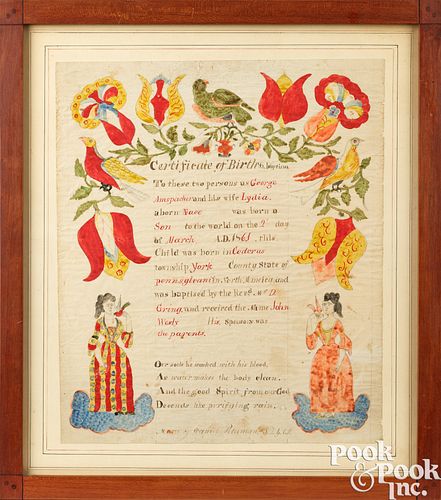 Certificate of Birth & Baptism
To these two persons as George
Anspacher and his wife Lydia,
a born Nace was born a
Son to the world on the 2d day
of March, A.D. 1861, this
Child was born in Codorus
township York County State of
pennsylvania in North America, and
was baptised by the Revd. Mr D
Gring, and received the Name John
Wesly His Sponsors was
the parents.
Our souls he washed with his blood,
As water makes the body clean;
And the good Spirit from our God
Decends like purifying rain.
Daniel Peterman
Pook
& Pook
Inc.